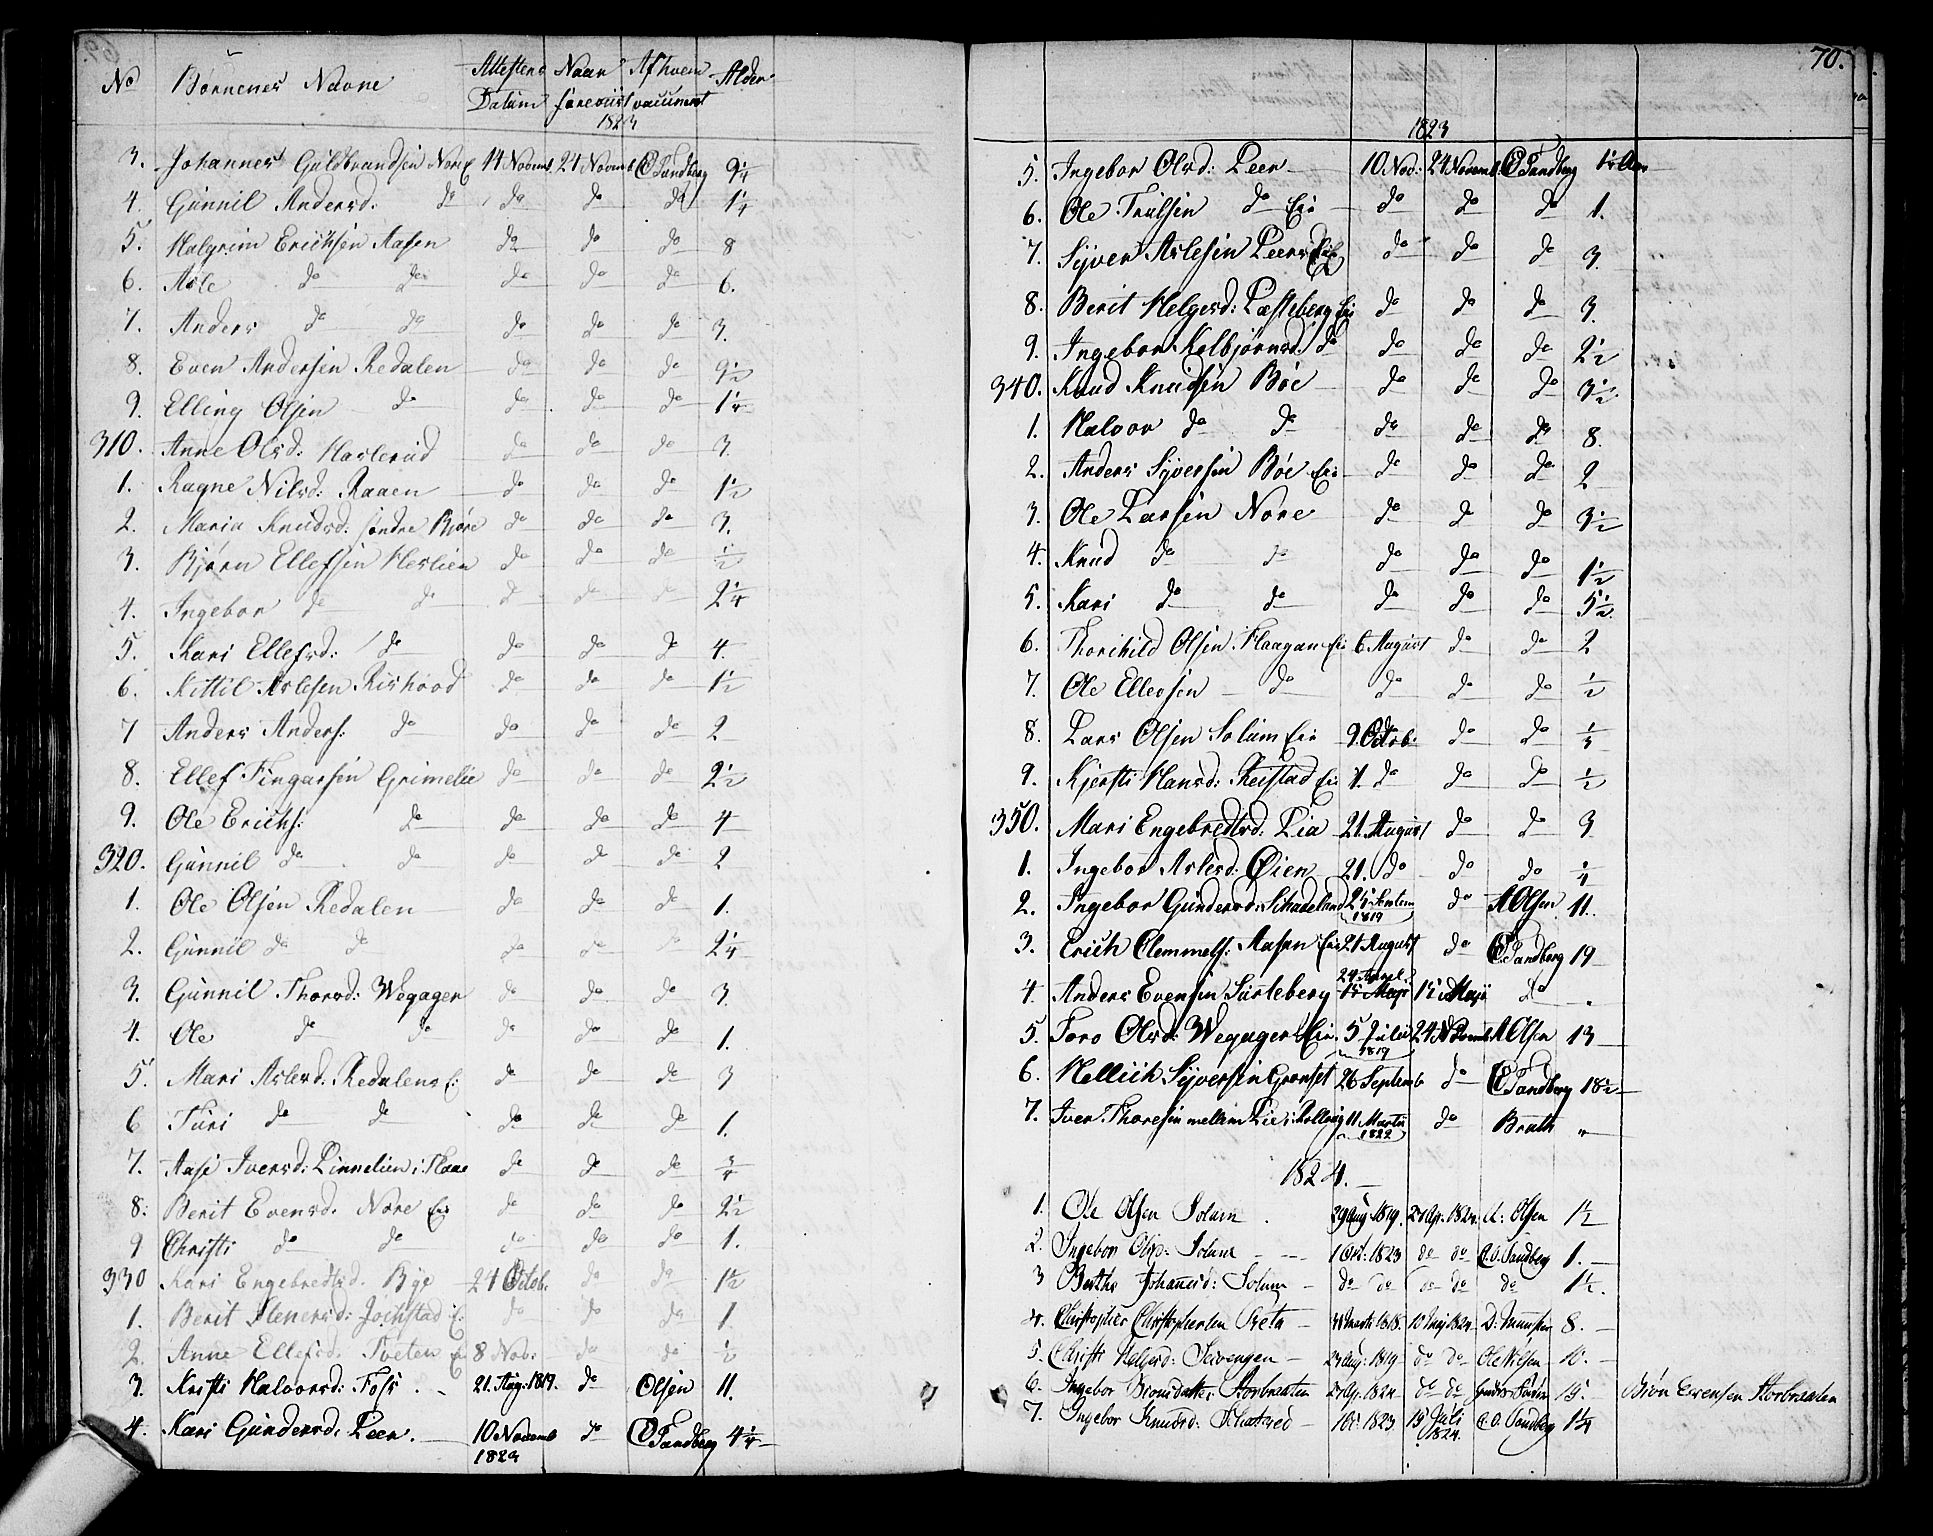 No Børnenes Navne Attestens Naar Af hvem Alder
Datum foreviist vaccineret
1823
3. Johannes Guldbrandsen Nore 14 Novemb 24 Novemb CO Sandberg 9¼
4. Gunnil Andersd: do do do do 1¼
5. Halgrim Erichsen Aasen do do do 8
6. Asle do do do do do 6.
7. Anders do do do do do 3.
8. Even Andersen Redalen do do do 9½
9. Elling Olsen do do do do 1¼
310. Anne Olsd: Haslerud do do do 3.
1. Ragne Nilsd: Raaen do do do 1½
2. Maria Knudsd. søndre Bjøre do do do 3.
3. Bjørn Ellefsen Heslien do do do ½
4. Ingebor do do do do do 2¼
5. Kari Ellefsd: do do do do 4.
6. Kittil Aslesen Rishood do do do 1½
7 Anders Anders: do do do do 2
8. Ellef Fingarsen Grimelie do do do 2½
9. Ole Erichs: do do do do 4
320. Gunnil do do do do do 2
1. Ole Olsen Redalen do do do 1.
2. Gunnil do do do do do 2¼
3. Gunnil Thorsd: Wegager do do do 3.
4. Ole do do do do do 1.
5. Mari Aslesd: Redalens E: do do do 3
6 Turi do do do do do 1.
7. Aase Iversd: Linnelien i Flaae do do do ¾
8. Berit Evensd. Nore Eie do do do 2½
9 Christi do do do do do 1.
330 Kari Engebretsd. Bye 24 Octob. do do 1½
1. Berit Stenersd: Jochstad E: do do do 1.
2. Anne Ellefsd. Tveten E 8 Nov: do do ½
3. Kristi Halvorsd: Foss 21. Aug: 1819. do Olsen 11.
4. Kari Gundersd. Peer. 10 Novemb do CO Sandberg 4¼
1823
70.
1823
5. Ingebor Olsd: Peer 10 Nov: 24 Novemb: CO Sandberg 1¼ Aar
6. Ole Trulsen do Eie do do do 1.
7. Syver Aslesen Peers Eie do do do 3.
8. Berit Helgesd: Læsteberg Eie do do do 3.
9. Ingebor Kolbjørnsd: do do do do 2½
340. Knud Knudsen Bøe do do do 3½
1. Halvor do do do do do 8.
2. Anders Syversen Bøe Eie do do do 2
3. Ole Larsen Nore do do do 3½
4. Knud do do do do do 1½
5. Kari do do do do do 5½
6. Thorchild Olsen Flaagan Eie 6 August do do 2
7. Ole Ellevsen do do do do ½
8. Lars Olsen Solum Eie 9. Octob. do do ⅓
9. Kjersti Hansd: Skeistad Eie 1. do do do ½
350. Mari Engebretsd. Lia 21. August do do 3
1. Ingebor Aslesd: Øien 21. do do do ¼
2. Ingebor Gundersd: Skadeland 25 Septem do A Olsen 11.
1819
3. Erich Clemmets: Aasen Eie 21 August do CO Sandberg 19
24 April
4. Anders Evensen Surteberg 15 Maji 15 Maji do "
5. Toro Olsd: Wegager Eie. 5 Julii 24 Novemb A Olsen 13
1819
6. Hellich Syversen Grønset 26 Septemb do CO Sandberg 18½
7. Iver Thoresen mellem Lie i Rolloug 11 Martii do Brath "
1822
1824.
1. Ole Olsen Solum 29 Aug 1819. 24 Ap. 1824. A: Olsen 1½
2. Ingebor Olsd: Solum 1 Oct: 1823 do do C. O. Sandberg 1.
3 Berthe Johannesd: Solum do do do do do 1½.
4. Christopher Christophersen Treta Martii 1818. 10 Maj 1824. D: 8.
5. Christi Helgesd: Seivengen 23 Aug: 1819 do do Ole Nilsen 10.
6. Ingebor Biørnsdatter Storbraaten 27 Ap. 1824 do do 15. Biørn Evensen Storbraaten
7. Ingebor Knudsd: 1 Oct 1823. 15 Juli C. O. Sandberg 1¼
1824.